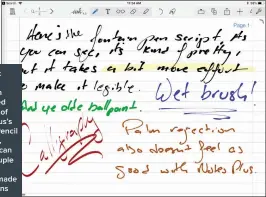 11:24 AM
Page 1
Here's the fountain pen script. As
you can see, it's kind of pretty,
but it takes a bit more effort
to make it legible. Wet brush!
And ye olde ballpoint.
Calligraphy
Palm rejection
also doesn't feel as
good with Notes Plus.